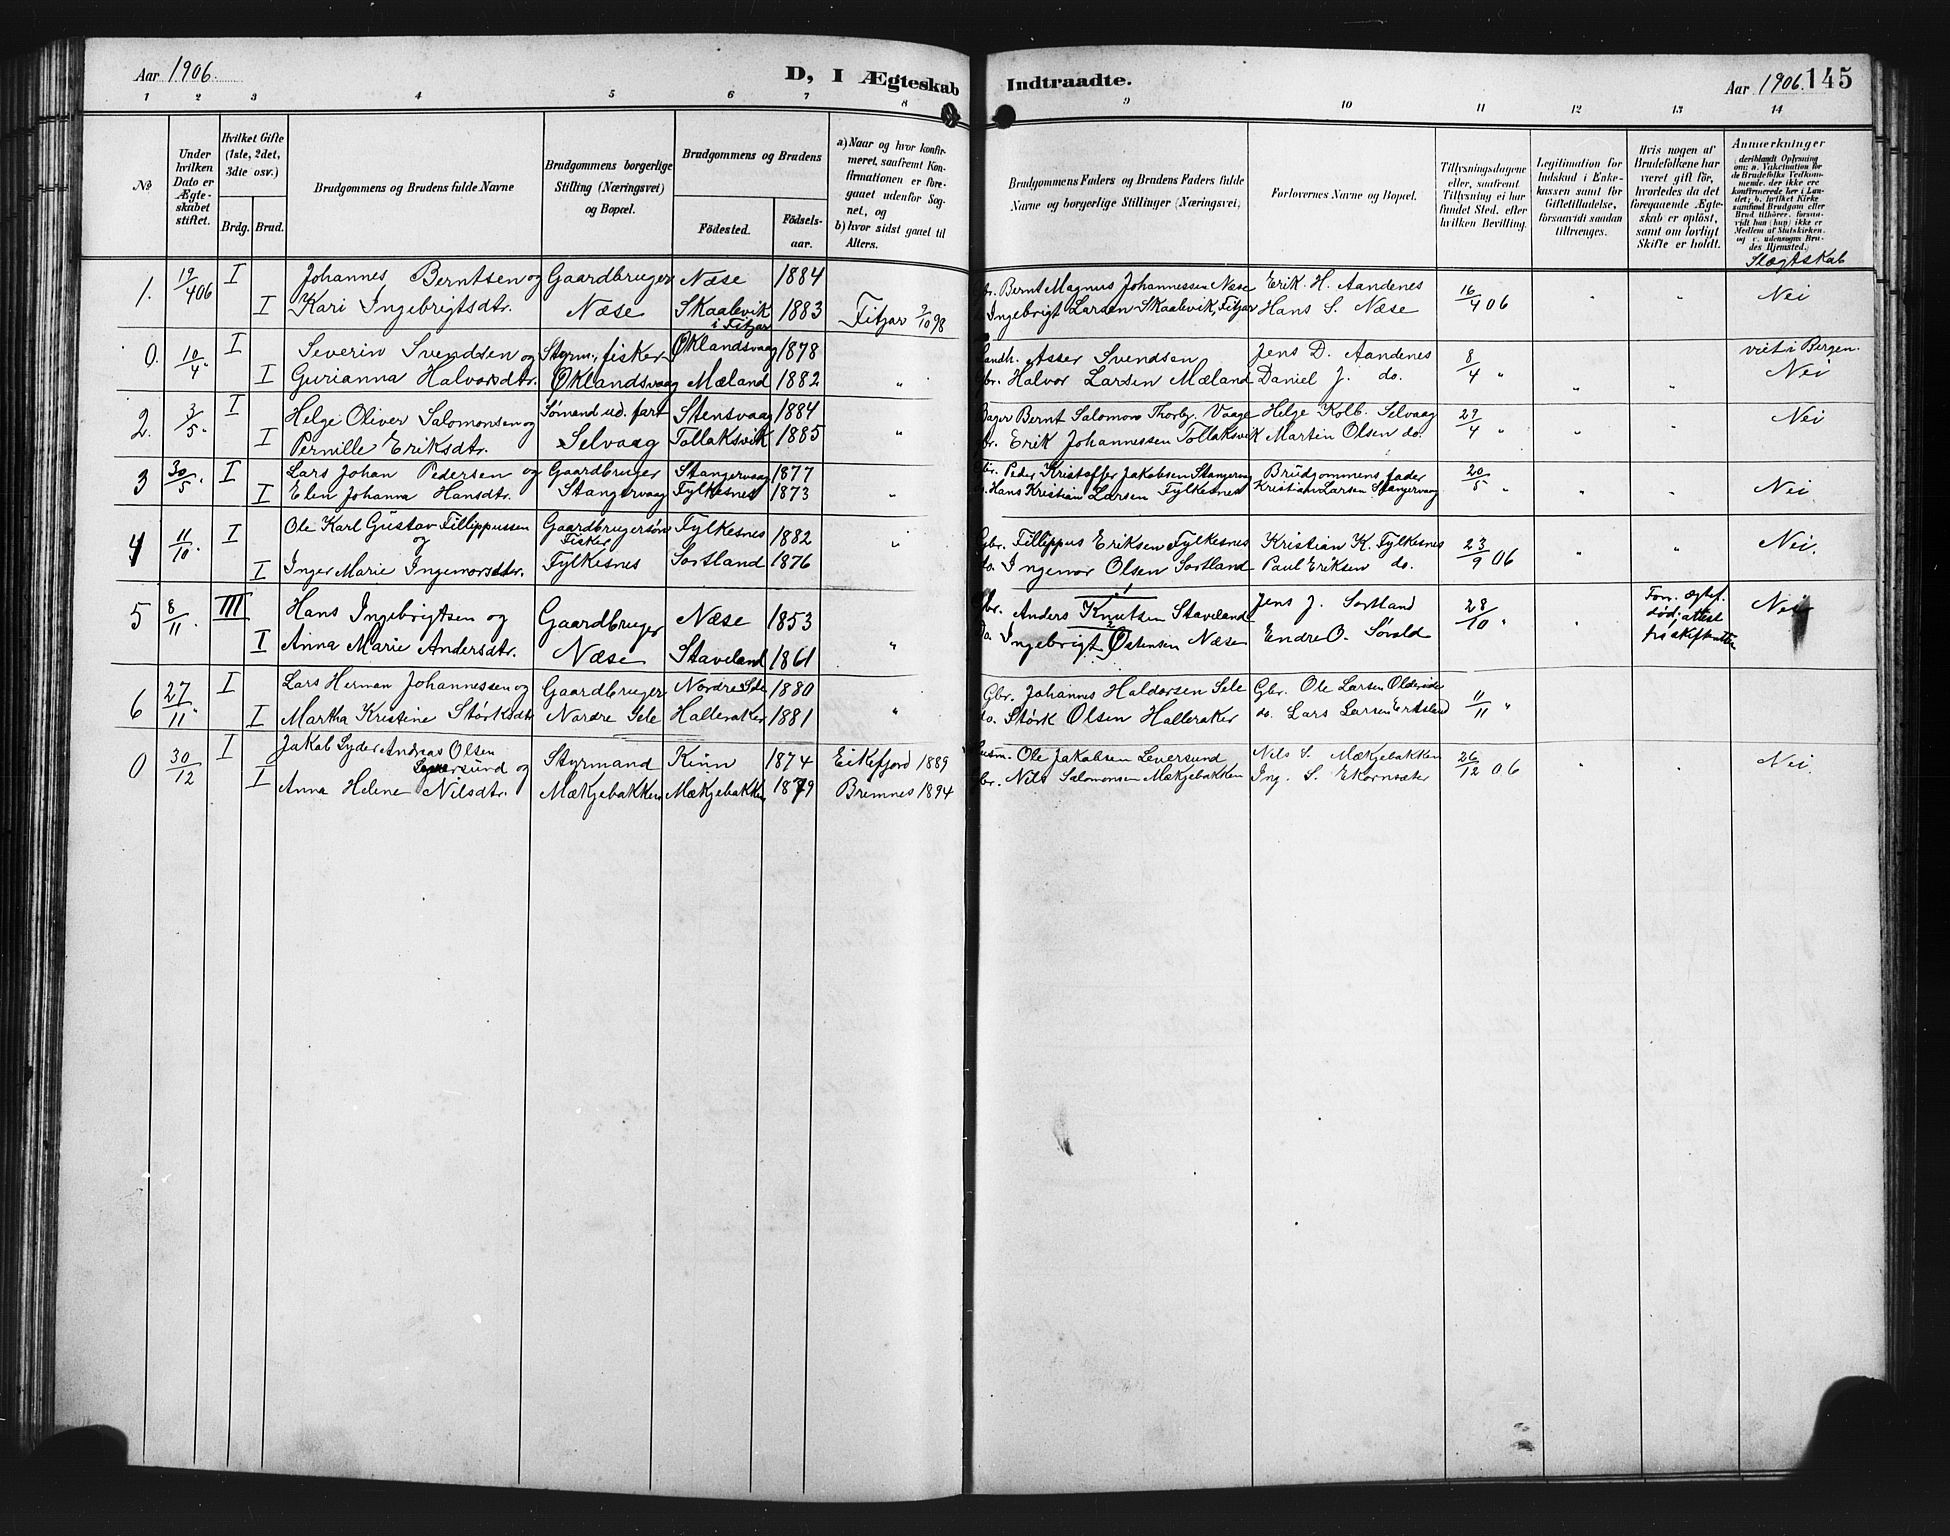 Aar 1906.
D, I Ægteskab Indtraadte.
Aar 1906. 145
1 2 3 4 5 6 7 8 9 10 11 12 13 14
No
Under hvilken Dato er Ægteskabet stiftet.
Hvilket Gifte (1ste, 2det, 3die osv.)
Brdg. Brud.
Brudgommens og Brudens fulde Navne
Brudgommens borgerlige Stilling (Næringsvei) og Bopæl.
Brudgommens og Brudens
Fødested. Fødselsaar.
a) Naar og hvor konfirmeret, saafremt Konfirmationen er foregaaet udenfor Sognet, og
b) hvor sidst gaaet til Alters.
Brudgommens Faders og Brudens Faders fulde Navne og borgerlige Stillinger (Næringsvei)
Forlovernes Navne og Bopæl.
Tillysningsdagene eller, saafremt Tillysning ei har fundet Sted, efter hvilken Bevilling.
Legitimation for Indskud i Enkekassen samt for Giftetilladelse, forsaavidt saadan tiltrænges.
Hvis nogen af Brudefolkene har været gift før, hvorledes da det foregaaende Ægteskab er opløst, samt om lovligt Skifte er holdt.
Anmerkninger
Slægtskab
1. 19/4 06 I Johannes Berntsen og Gaardbruger Næse 1884 Gbr. Bernt Magnus Johannessen Næse Erik H. Aandenes 16/4 06 " " Nei
I Kari Ingebrigtsdtr. Næse Skaalevik i Fitjar 1883 Fitjar 2/10 98 Ingebrigt Larsen Skaalevik, Fitjar Hans S. Næse
0. 10/4 I Severin Svendsen og Styrm., fisker Øklandsvaag 1878 Landh. Asser Svendsen Jens D. Aandenes 8/4 " " " viet i Bergen.
I Gurianna Halvorsdtr. Øklandsvaag Mæland 1882 " Gbr. Halvor Larsen Mæland Daniel J. do. Nei
2. 3/5 I Helge Oliver Salomonsen og Sømand ud. fart Stensvaag 1884 Bernt Salomon Thorbj. Vaage Helge Kolb. Selvaag 29/4 " " " Nei
I Pernille Eriksdtr. Selvaag Tollaksvik 1885 " Erik Johannessen Tollaksvik Martin Olsen do.
3 30/5. I Lars Johan Pedersen og Gaardbruger Stangervaag 1877 Gbr. Peder Kristoffer Jakobsen Stangervaag Brudgommens fader 20/5 " " " Nei
I Elen Johanna Hansdtr. Stangervaag Fylkesnes 1873 " Hans Kristian Larsen Fylkesnes Kristian Larsen Stangervaag
4 11/10. I Ole Karl Gustav Fillippussen og Gaardbrugersøn Fisker Fylkesnes 1882 " Gbr. Fillippus Eriksen Fylkesnes Kristian K. Fylkesnes 23/9 06 " " Nei.
I Inger Marie Ingemorsdtr. Fylkesnes Sortland 1876 do. Ingemor Olsen Sortland Paul Eriksen do.
5 8/11. III Hans Ingebrigtsen og Gaardbruger Næse 1853 Gbr. Anders Knutsen Staveland Jens J. Sortland 28/10 " " Forr. ægtef. død; attest fra skifteretten Nei
I Anna Marie Andersdtr. Næse Staveland 1861 " do. Ingebrigt Østensen Næse Endre O. Sørald
6 27/11. I Lars Herman Johannessen og Gaardbruger Nordre Sele 1880 Gbr. Johannes Haldorsen Sele Gbr. Ole Larsen 11/11 "
I Martha Kristine Størksdtr. Nordre Sele Halleraker 1881 " do. Størk Olsen Halleraker do. Lars Larsen
0 30/12 I Jakob Lyder Andreas Olsen Leversund og Styrmand Kinn 1874 Eikefjord 1889 Husm. Ole Jakobsen Leversund Nils S. Mækjebakken 26/12 06 " " Nei.
I Anna Helene Nilsdtr. Mækjebakken Mækjebakken 1879 Bremnes 1894 Gbr. Nils Salomonsen Mækjebakken Ing. S. Ekornsæter